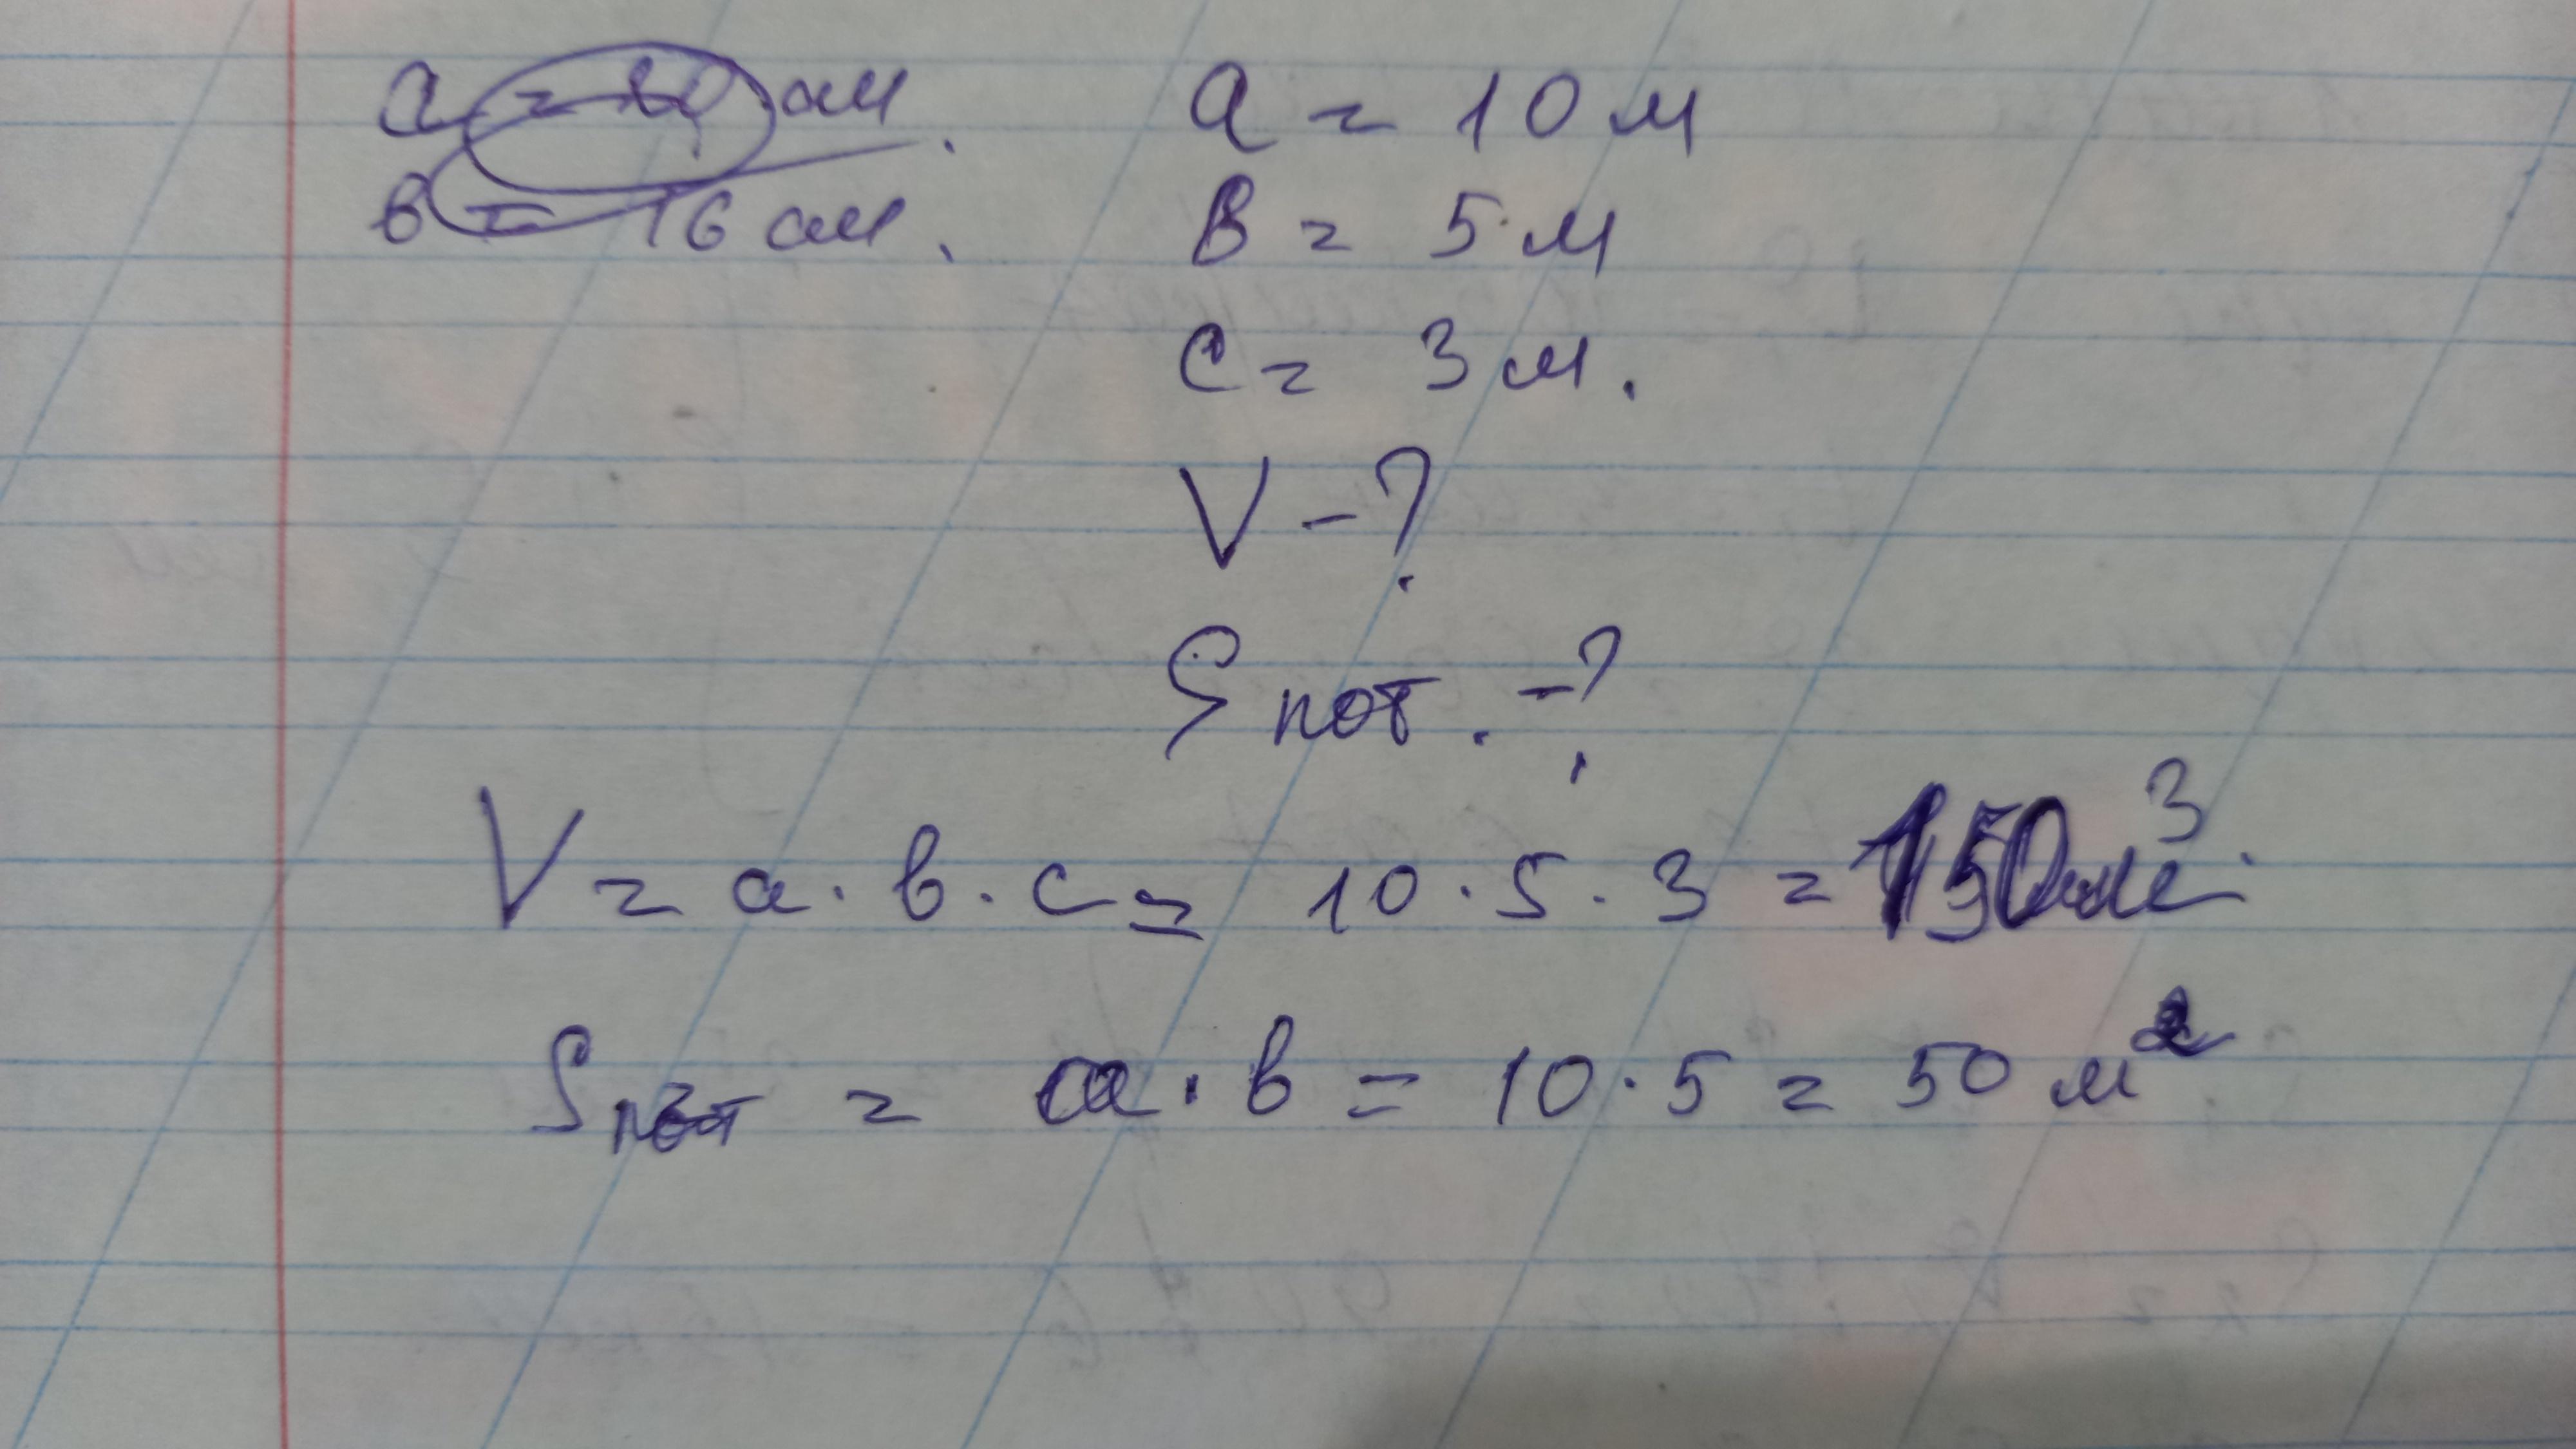 a = 10 м
в = 16 см.
B = 5 м
c = 3 м.
V - ?
S пот. - ?
V = a · в · c = 10 · 5 · 3 = 150 м³
Sпот = a · в = 10 · 5 = 50 м²